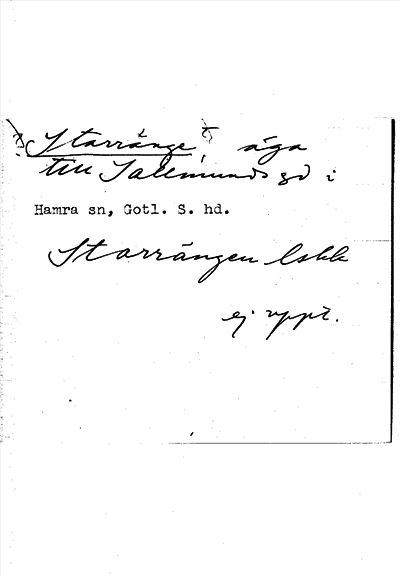 Starränge, äga
till Sallmunds gd i
Hamra sn, Gotl. S. hd.
Starrängen Lskk
ej uppt.